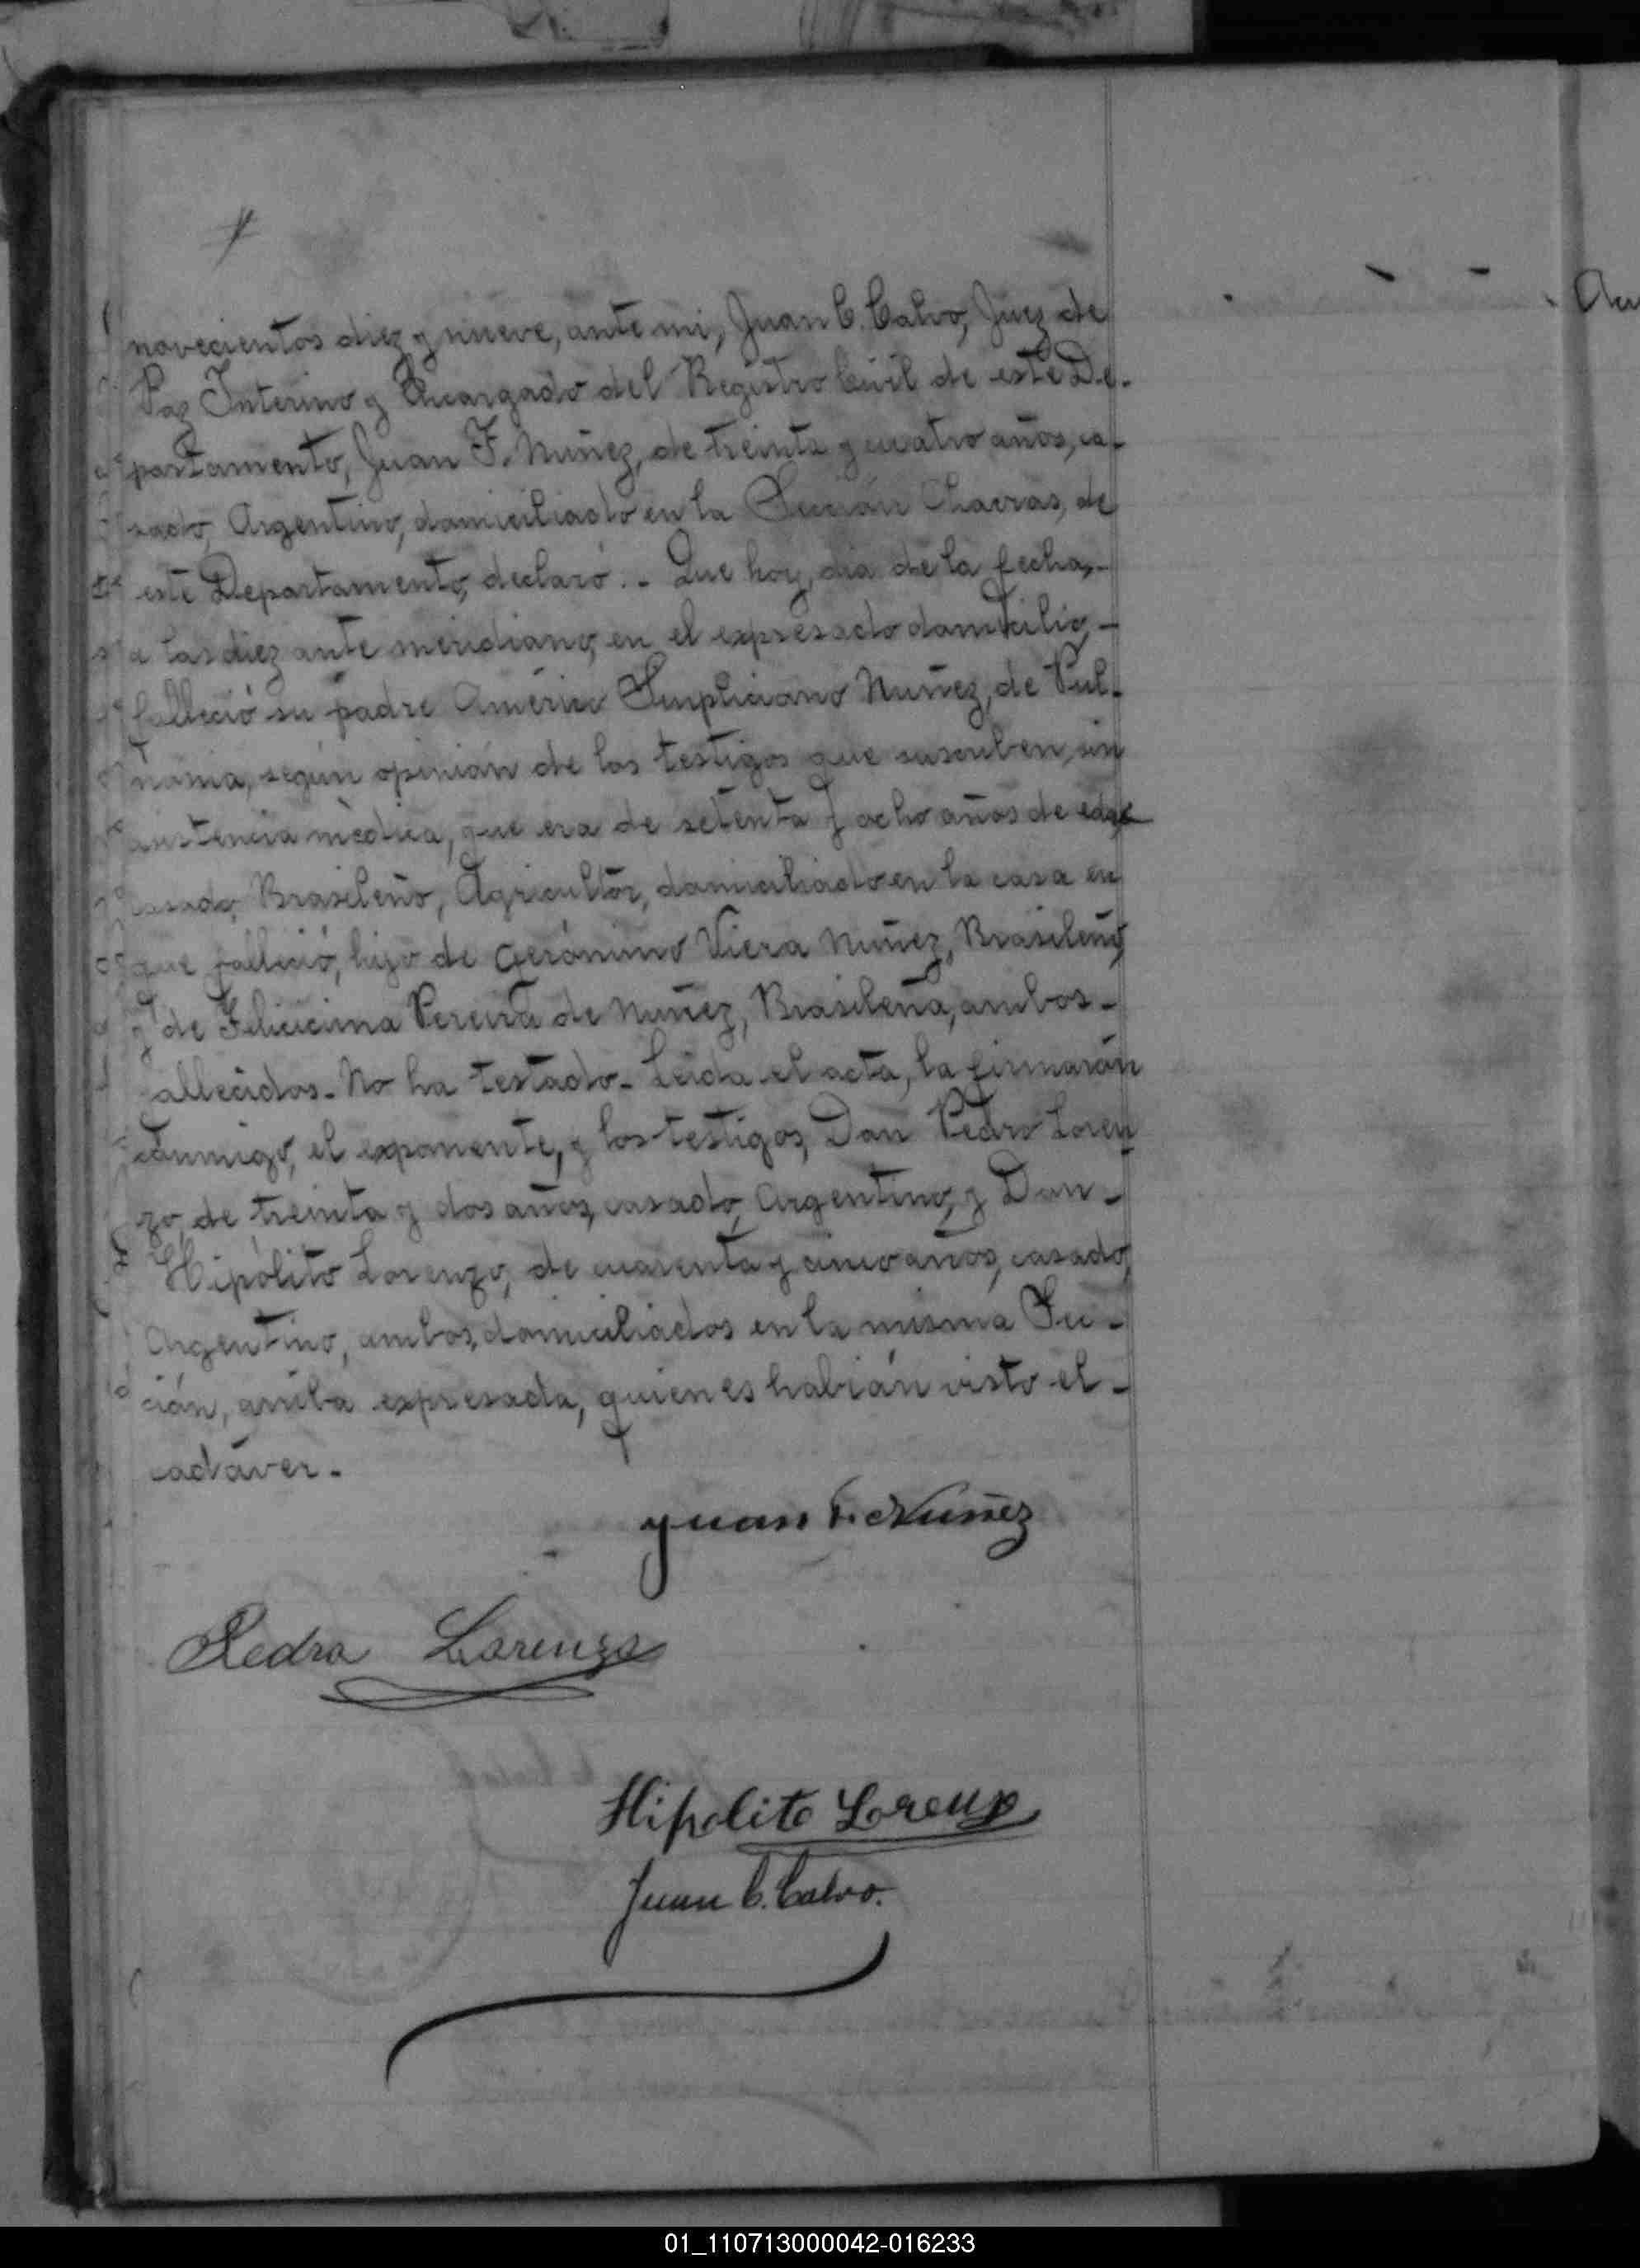 novecientos diez y nueve, ante mi, Juan C. Calvo, Juez de
Paz Interino y Encargado del Registro Civil de este De-
partamento, Juan F. Nuñez, de treinta y cuatro años, ca-
sado, Argentino, domiciliado en la Sección Chacras, de
este Departamento, declaró:- Que hoy, dia de la fecha,-
a las diez ante meridiano, en el expresado domicilio,-
falleció su padre Américo Simpliciano Nuñez, de Pul-
monia, según opinión de los testigos que suscriben, sin
asistencia mèdica, que era de setenta y ocho años de edad
casado, Brasileño, Agricultor, domiciliado en la casa en
que falleció, hijo de Gerónimo Viera Nuñez, Brasileño,
y de Felicicima Pereira de Nuñez, Brasileña, ambos-
fallecidos.- No ha testado.- Leida el acta, la firmarón
conmigo, el exponente, y los testigos, Don Pedro Loren
zo, de treinta y dos años, casado, Argentino, y Don-
Hipólito Lorenzo, de cuarenta y cinco años, casado,
Argentino, ambos, domiciliados en la misma Sec-
ción, arriba expresada, quienes habián visto el-
cadáver.-
Juan F. Nuñez
Pedro Lorenzo
Hipolito Lorenzo
Juan C. Calvo.
01_110713000042-016233